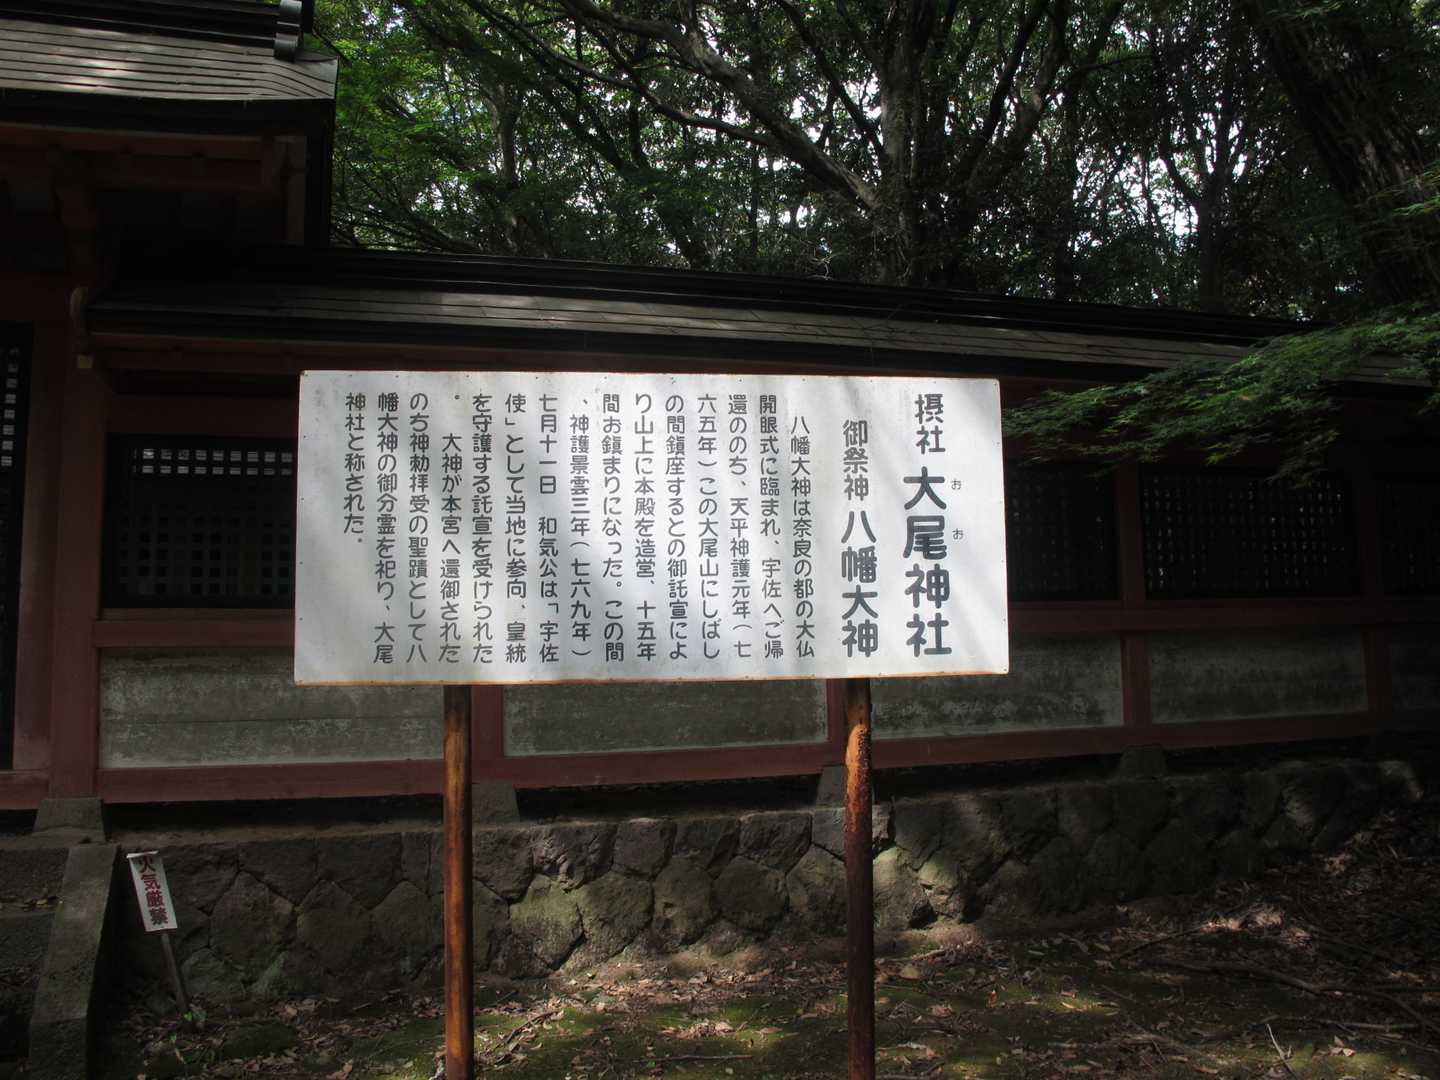 摂社 大尾神社
おお
御祭神 八幡大神
八幡大神は奈良の都の大仏
開眼式に臨まれ、宇佐へご帰
還ののち、天平神護元年(七
六五年)この大尾山にしばし
の間鎮座するとの御託宣によ
り山上に本殿を造営、十五年
間お鎮まりになった。この間
、神護景雲三年(七六九年)
七月十一日 和気公は「宇佐
使」として当地に参向、皇統
を守護する託宣を受けられた
。 大神が本宮へ還御された
のち神勅拝受の聖蹟として八
幡大神の御分霊を祀り、大尾
神社と称された。
火気厳禁